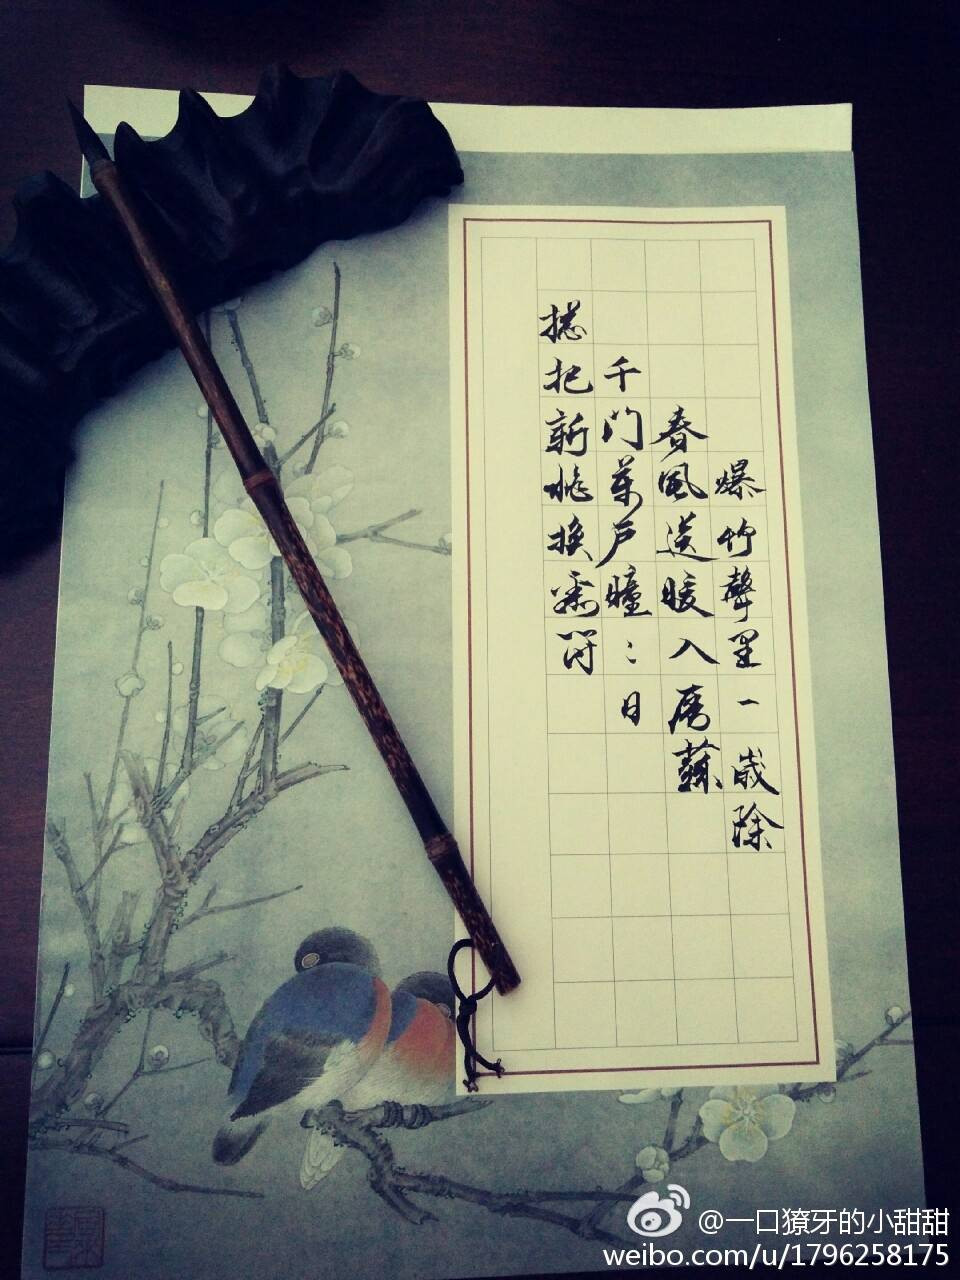 爆竹聲里一歲除
春風送暖入屠蘇
千门萬户曈〻日
摠把新桃換舊符
@一口獠牙的小甜甜
weibo.com/u/1796258175